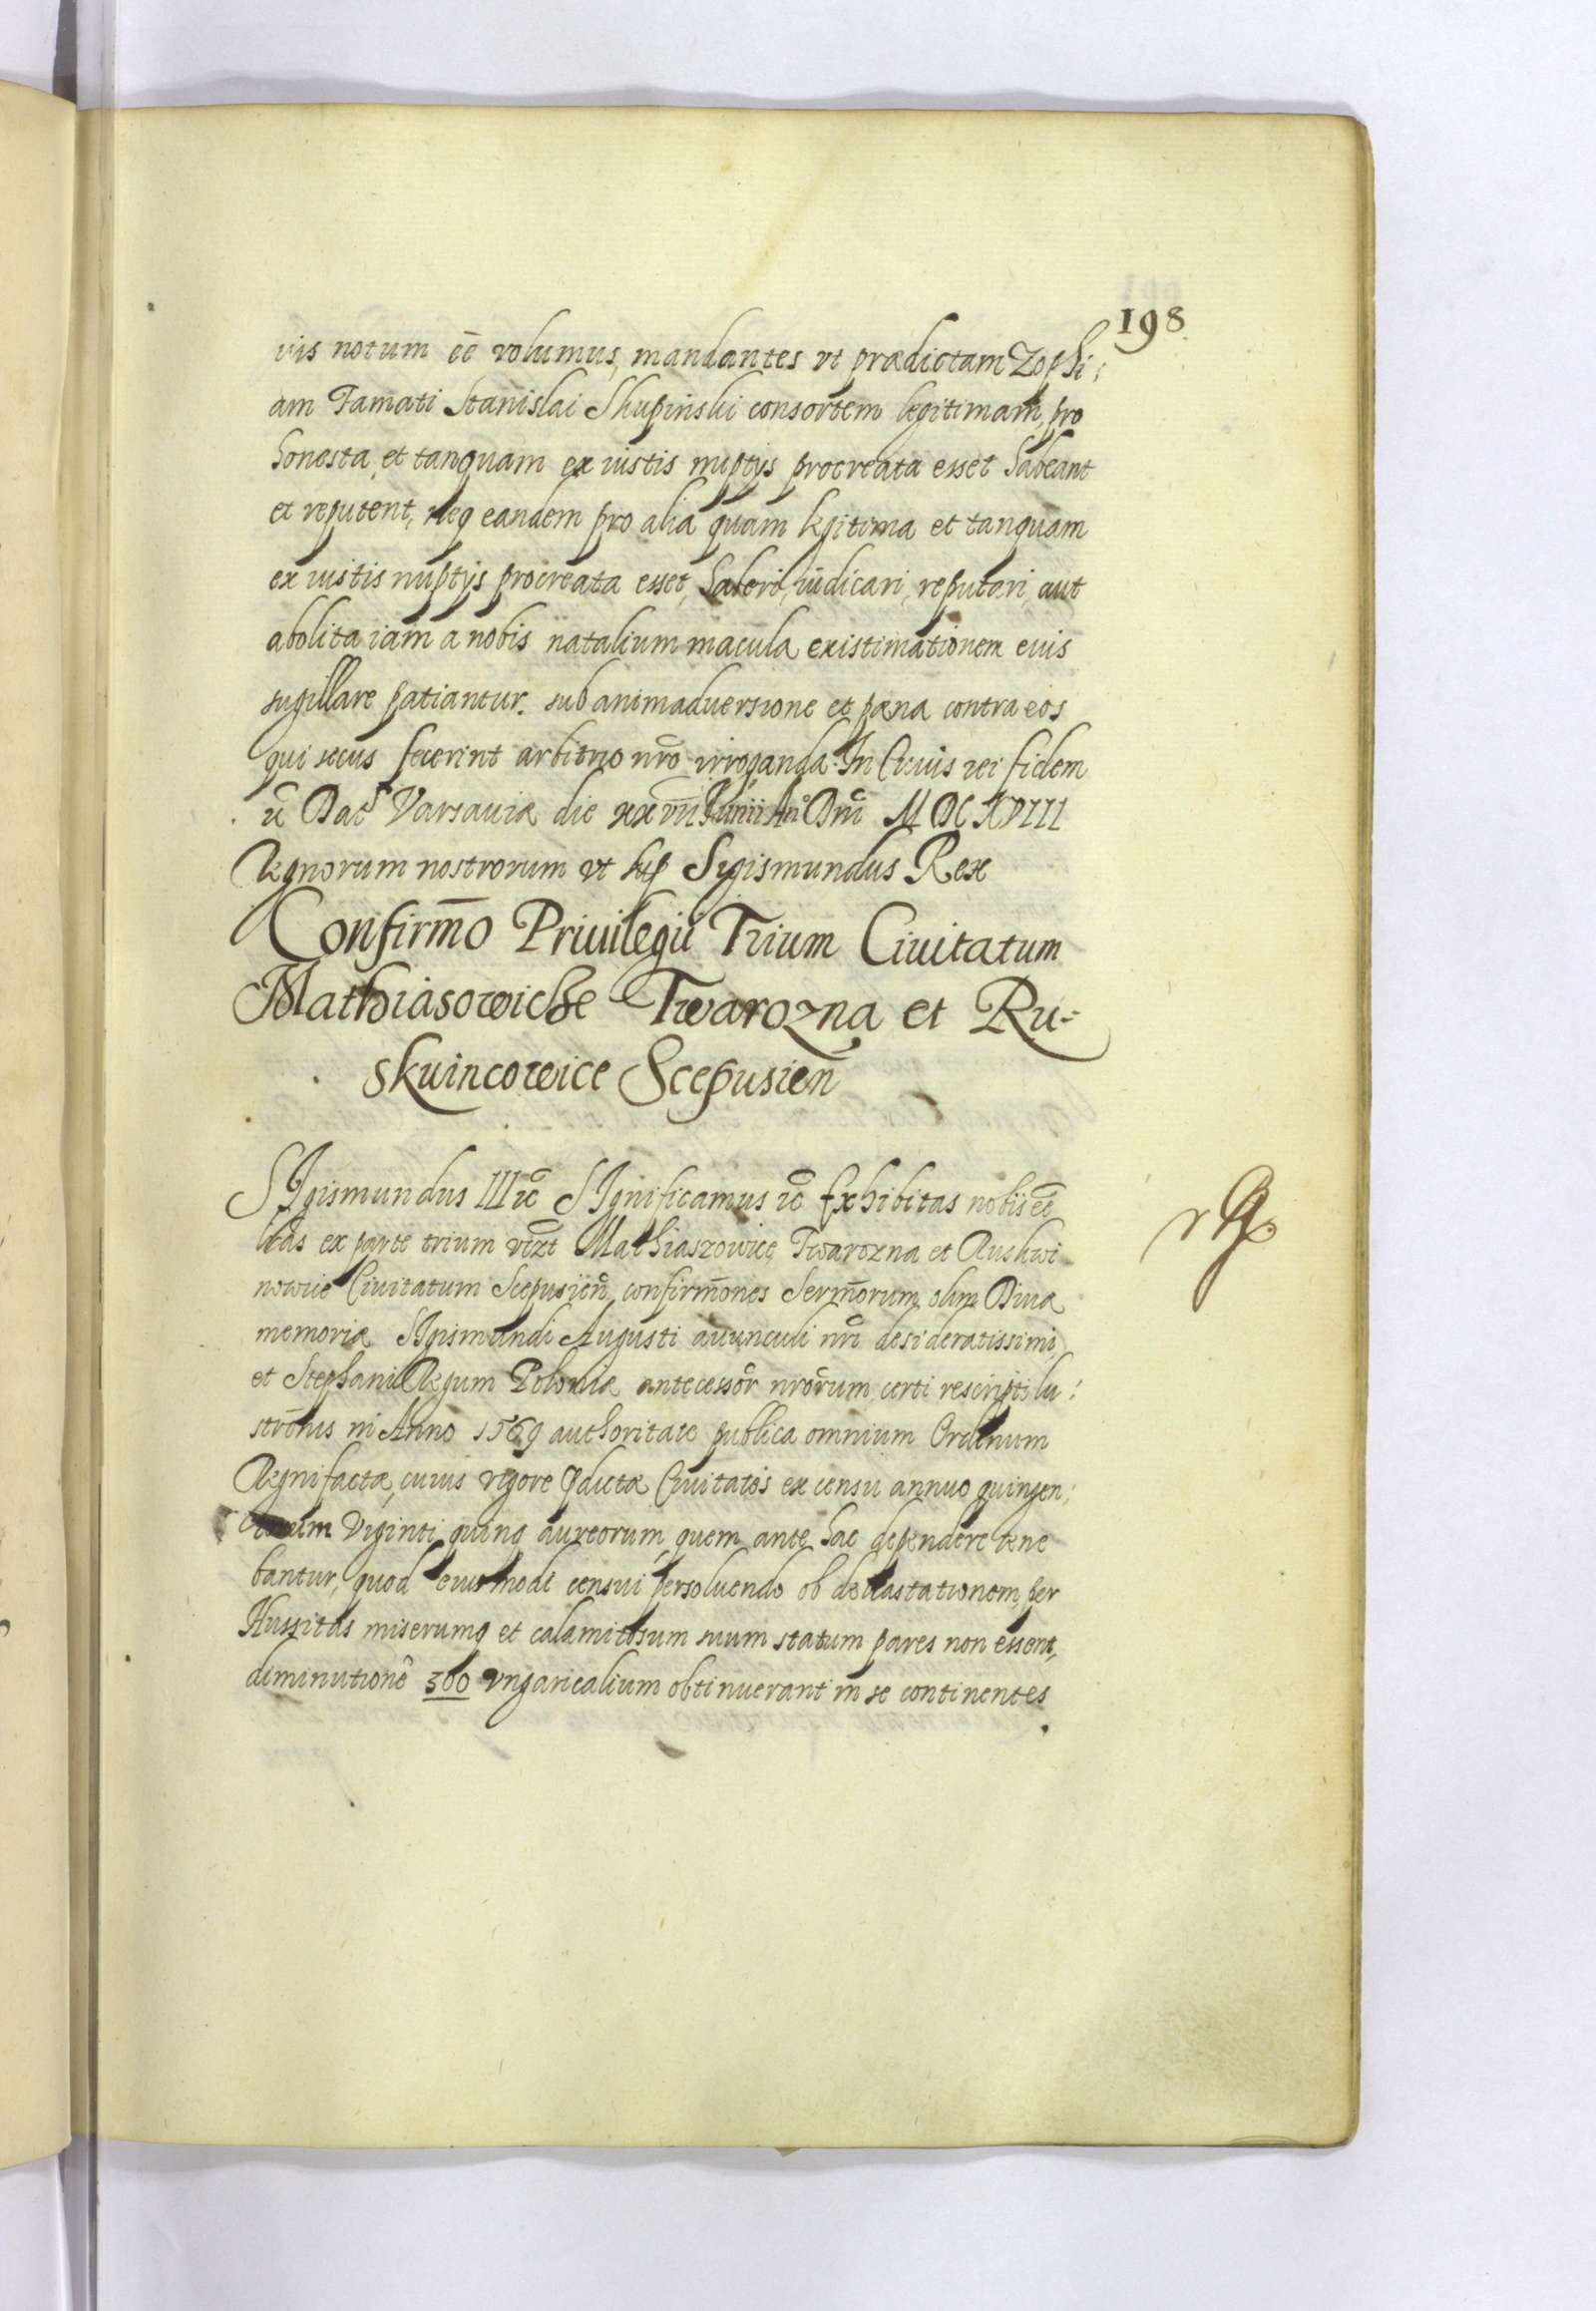 198
uis notum eē volumus, mandantes vt prædictam Zophi:
am Famati Stanislai Skupinski consortem legitimam, pro
honesta et tanquam ex iustis nuptijs procreata esset habeant
et reputent, neq eandem pro alia quam legitima et tanquam
ex iustis nuptijs procreata esset, haberi, iudicari, reputari, aut
abolita iam a nobis natalium macula existimationem eius
sugillare patiantur. sub animaduersione et pæna contra eos
qui secus fecerint arbitrio nr̃o irroganda. In Cuius rei fidem
ic̃ Dat Varsauiæ die xxvii Junii An° Dni MDCXVIII
Regnorum nostrorum vt sup Sigismundus Rex
Confirm̃o Priuilegii Trium Ciuitatum
Mathiasowiche Twarozna et Ru-
skuincowice Scepusien̄
SIgismundus III ic̃ SIgnificamus ic̃ Exhibitas nobis eē
lr̃as ex parte trium vizt Mathiaszowice, Twarozna et Ruskwi
nowiie Ciuitatum Scepusien̄, confirm̃ones Serm̃orum olim Diuæ
memoriæ SIgismundi Augusti auunculi nr̃i desideratissimi,
et Stephani Regum Poloniæ antecessor̃ nr̃orum, certi rescripti lu:
str̃onis in Anno 1569 authoritate publica omnium Ordinum
Regni factæ, cuius vigore p̃dictæ Ciuitates ex censu annuo quingen:
torum Viginti quinq aureorum, quem ante hac dependere tene
bantur, quod eiusmodi censui persoluendo ob deuastationem per
Hussitas miserumq et calamitosum suum statum pares non essent,
diminutionē 300 vngaricalium obtinuerant in se continentes